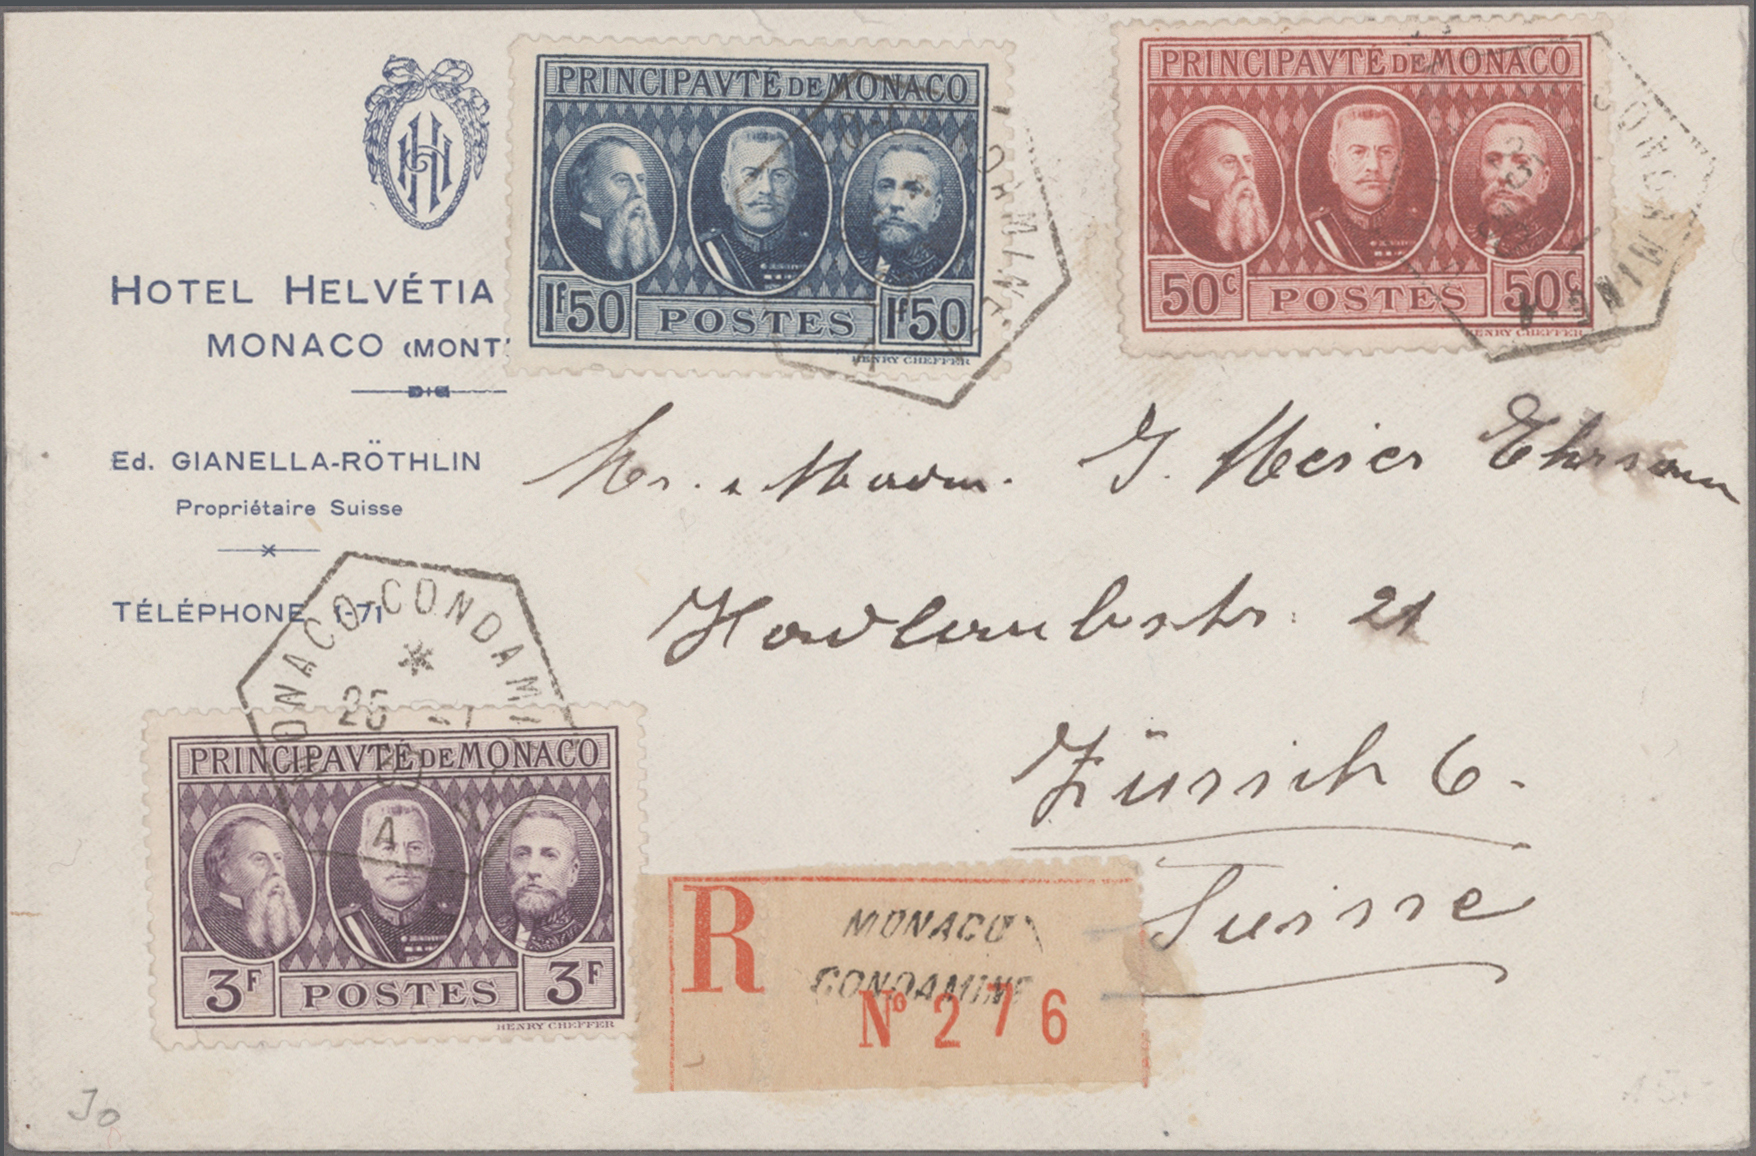 PRINCIPAVTÉ DE MONACO
1F50 POSTES 1F50
HENRY CHEFFER
PRINCIPAVTÉ DE MONACO
50C POSTES 50C
HENRY CHEFFER
HH
HOTEL HELVÉTIA
MONACO (MONT
Ed. GIANELLA-RÖTHLIN
Propriétaire Suisse
TÉLÉPHONE 1-71
Mr. & Madm. J. Meier Ehrsam
21
Zürich 6.
Suisse
MONACO-CONDAMINE
*
25 -1
A
PRINCIPAVTÉ DE MONACO
3F POSTES 3F
HENRY CHEFFER
R MONACO
CONDAMINE
No 276
Jo